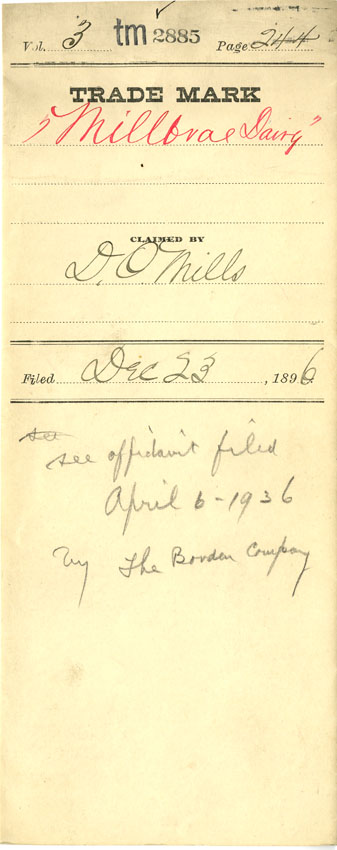 Vol. 3 tm 2885 Page 244
TRADE MARK
"Millbrae Dairy"
CLAIMED BY
D. O. Mills
Filed Dec 23, 1896
see
see affidavit filed
April 6-1936
by The Borden Company